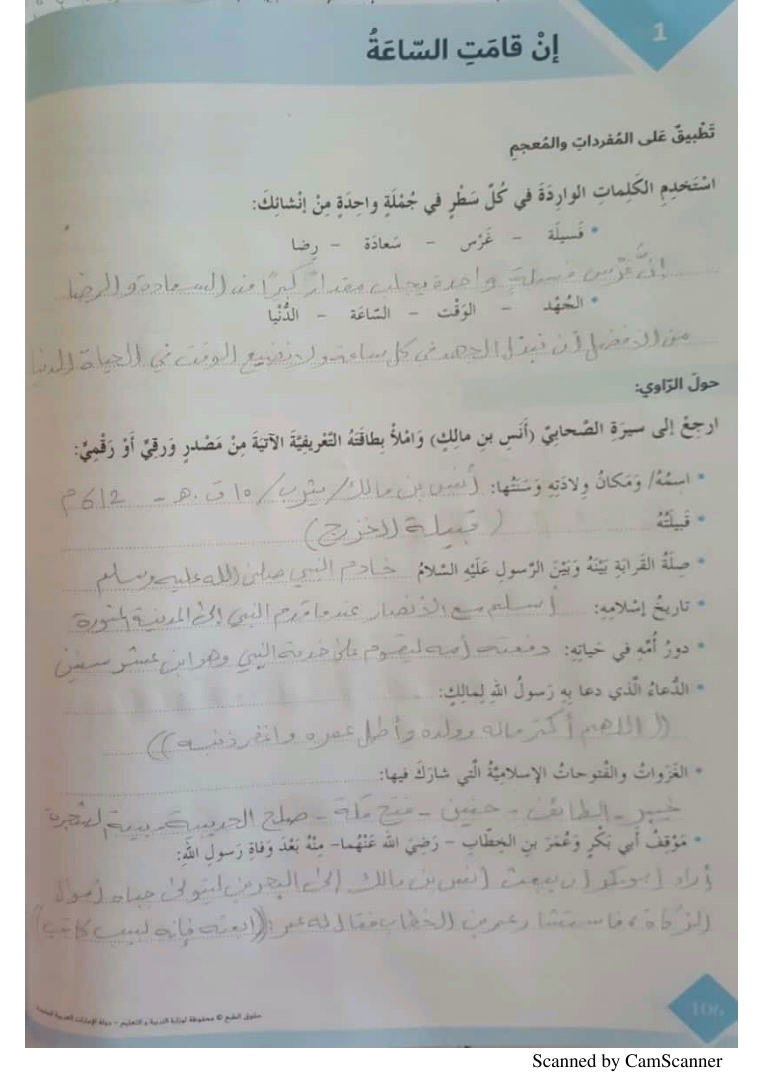 1
إنْ قامَتِ السّاعَةُ
تَطْبيقٌ عَلى المُفرداتِ والمُعجمِ
اسْتَخدِمِ الكَلِماتِ الوارِدَةَ في كُلِّ سَطْرٍ في جُمْلَةٍ واحِدَةٍ مِنْ إنْشائِكَ:
• فَسيلَة – غَرْس – سَعادَة – رِضا
إنَّ غَرْس فسيلةٍ واحدة يجلب مقدارً كبيرًا من السعادة و الرضا
• الجُهْد – الوَقْت – السّاعَة – الدُّنْيا
من الافضل أن نبذل الجهد في كل ساعة ولا نضيع الوقت في الحياة الدنيا
حولَ الرّاوي:
ارجِعْ إلى سيرَةِ الصَّحابيِّ (أَنَسِ بنِ مالِكٍ) وَامْلأْ بِطاقَتَهُ التَّعْريفيَّةَ الآتيَةَ مِنْ مَصْدَرٍ وَرَقيٍّ أَوْ رَقْميٍّ:
• اسمُهُ/ وَمَكانُ وِلادَتِهِ وَسَنَتُها: أنس بن مالك/ يثرب/ ١٠ ق.هـ – 612 م
• قَبيلَتُهُ (قبيلة الخزرج)
• صِلَةُ القَرابَةِ بَيْنَهُ وَبَيْنَ الرّسولِ عَلَيْهِ السّلامُ خادم النبي صلى الله عليه وسلم
• تاريخُ إسْلامِهِ: أسلم مع الأنصار عندما قدم النبي إلى المدينة المنورة
• دورُ أُمِّهِ في حَياتِهِ: دفعته أمه ليقوم على خدمة النبي وهو ابن عشر سنين
• الدُّعاءُ الّذي دعا بِهِ رَسولُ اللهِ لِمالِكٍ:
((اللهم أكثر ماله وولده وأطل عمره واغفر ذنبه))
• الغَزَواتُ والفُتوحاتُ الإسلاميَّةُ الّتي شارَكَ فيها:
خيبر – الطائف – حنين – فتح مكة – صلح الحديبية وبيعة الشجرة
• مَوْقِفُ أَبي بَكْرٍ وَعُمَرَ بنِ الخِطّابِ – رَضِيَ اللهُ عَنْهُما– مِنْهُ بَعْدَ وَفاةِ رَسولِ اللهِ:
أراد أبو بكر أن يبعث أنس بن مالك إلى البحرين ليتولى جباه أموال
الزكاة، فاستشار عمر بن الخطاب فقال له عمر: ((ابعثه فإنه لبيب كاتب))
حقوق الطبع © محفوظة لوزارة التربية و التعليم – دولة الإمارات العربية المتحدة
106
Scanned by CamScanner